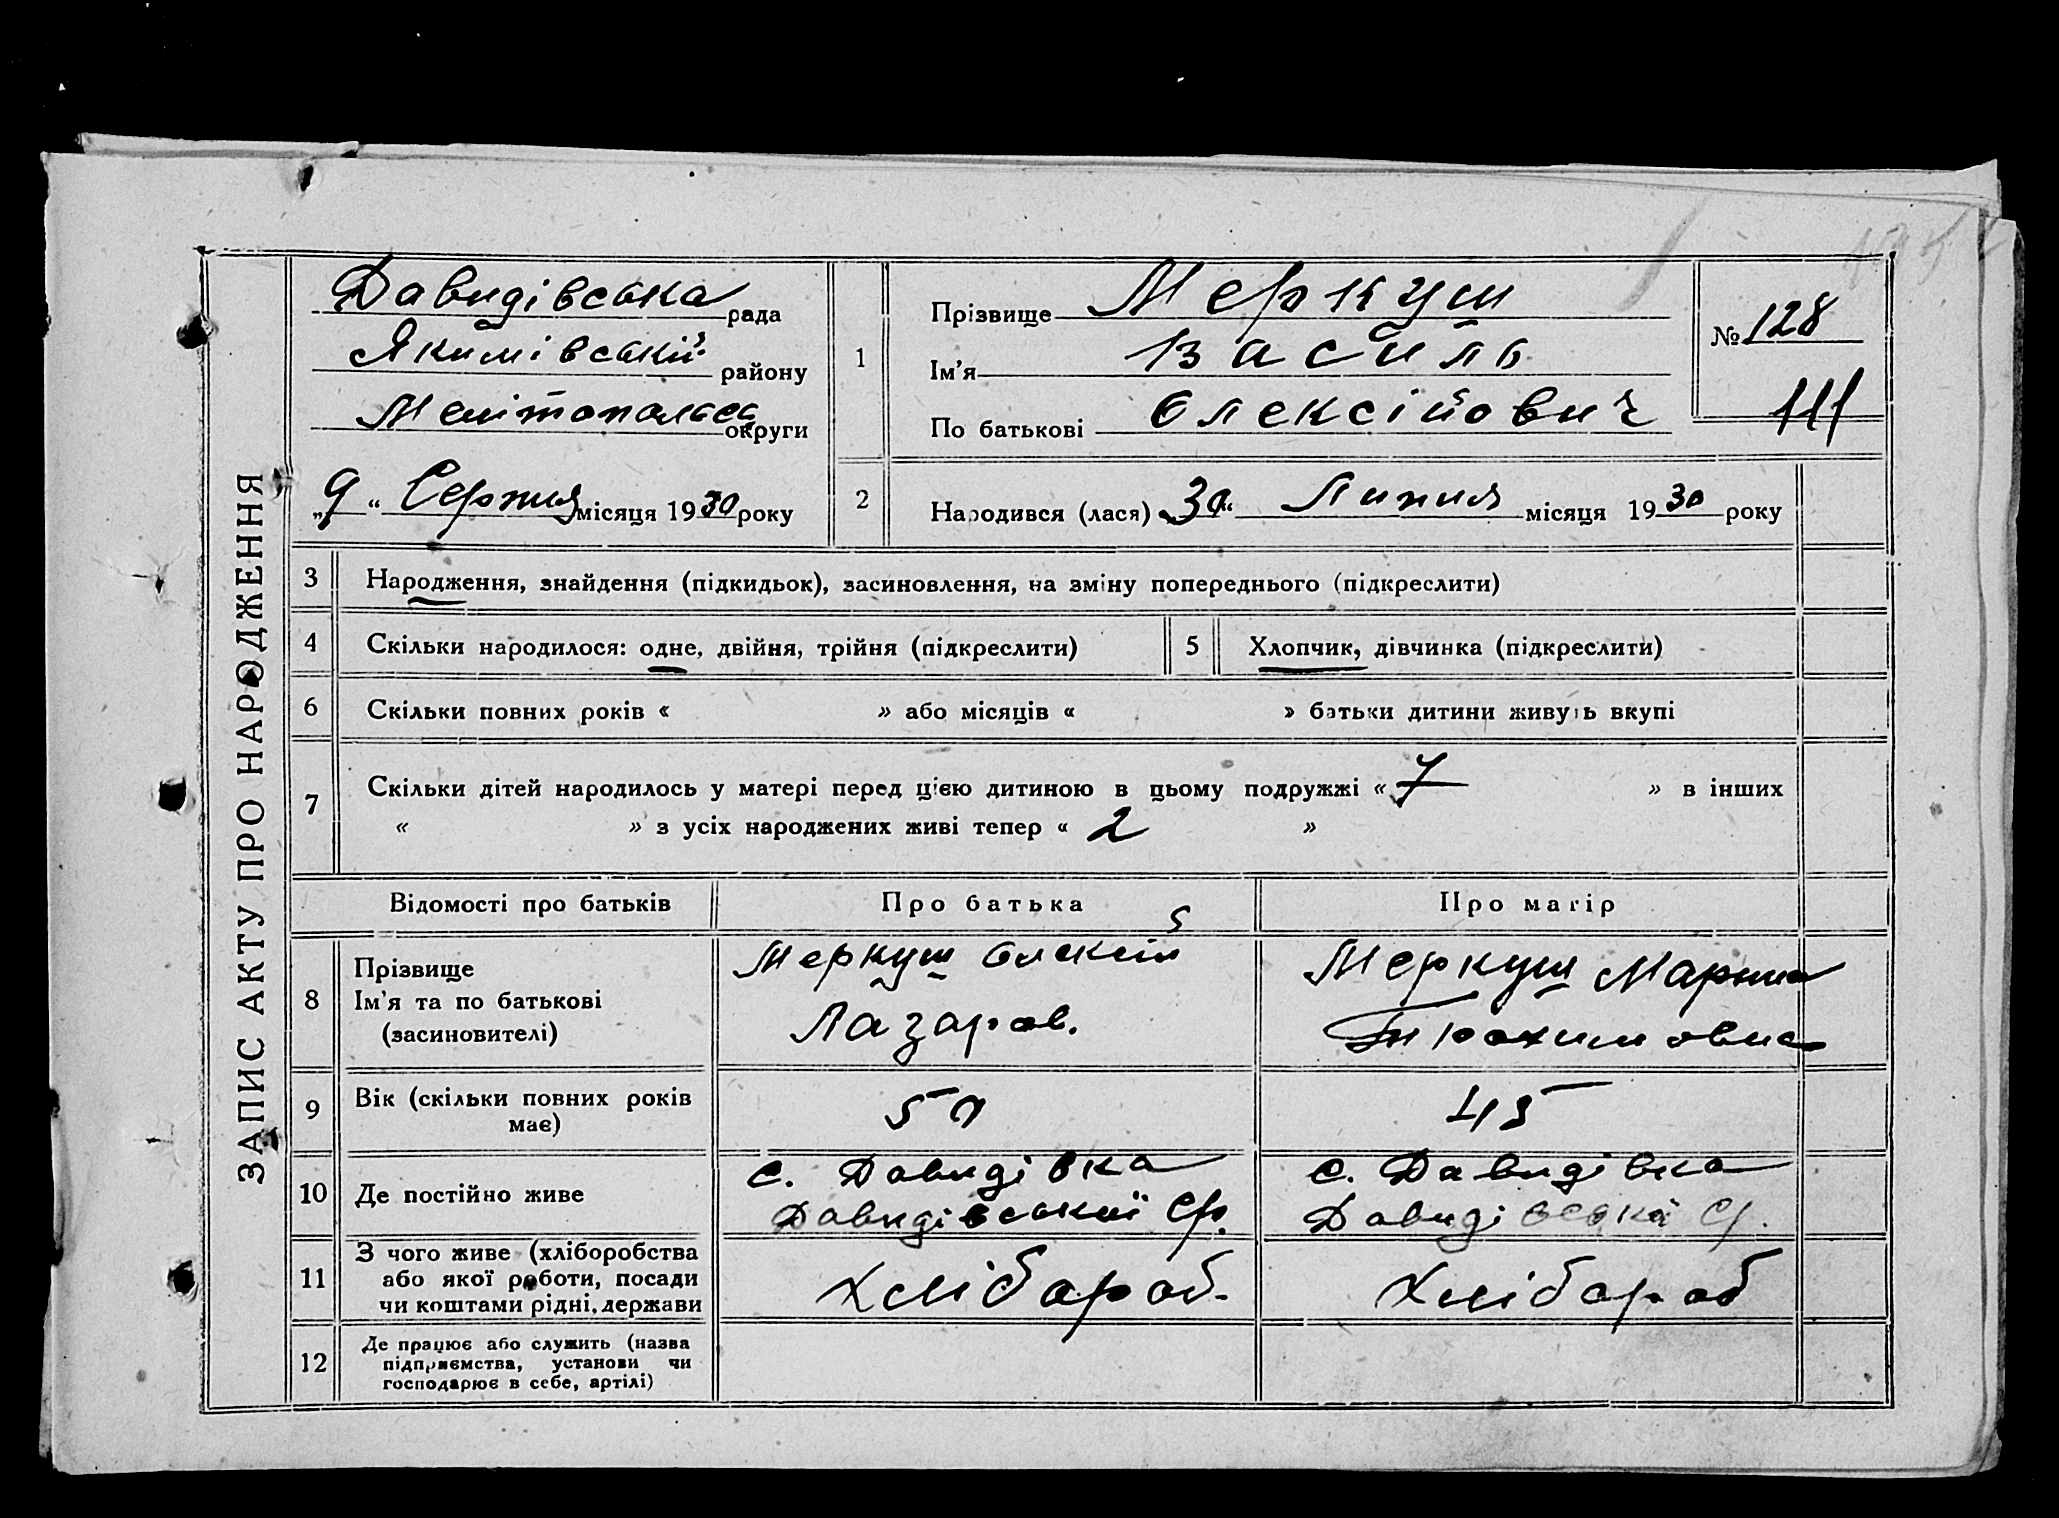 ЗАПИС АКТУ ПРО НАРОДЖЕННЯ
Давидівська рада
Якимівський району
Мелітопольськ округи
„9“ Серпня місяця 1930 року
1
Прізвище Меркуш
Ім'я Василь
По батькові Олексійович
№ 128
111
2
Народився (лася) „30“ Липня місяця 1930 року
3 Народження, знайдення (підкидьок), засиновлення, на зміну попереднього (підкреслити)
4 Скільки народилося: одне, двійня, трійня (підкреслити) 5 Хлопчик, дівчинка (підкреслити)
6 Скільки повних років « » або місяців « » батьки дитини живуть вкупі
7 Скільки дітей народилось у матері перед цією дитиною в цьому подружжі « 7 » в інших
« » з усіх народжених живі тепер « 2 »
Відомості про батьків Про батька Про матір
8 Прізвище
Ім'я та по батькові
(засиновителі)
Меркуш Олексій
Лазаров.
Меркуш Марина
Трохимовна
9 Вік (скільки повних років
має)
50
45
10 Де постійно живе
с. Давидівка
Давидівської с/р.
с. Давидівка
Давидівської с/р.
11 З чого живе (хліборобства
або якої роботи, посади
чи коштами рідні, держави
хлібороб.
хлібороб
12 Де працює або служить (назва
підприємства, установи чи
господарює в себе, артілі)